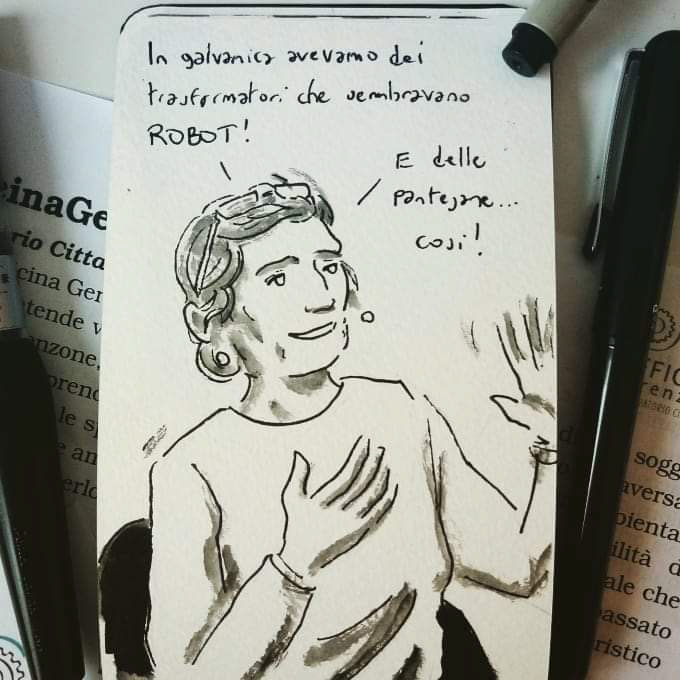 In galvanica avevamo dei
trasformatori che sembravano
ROBOT!
E delle
pantegane...
così!
cinaGe
rio Citta
cina Ger
tende v
anzone,
prend
le sp
e am
erlo
FFIC
enz
ATORIO C
sogg
aversa
bienta
ilità d
ale che
passato
ristico